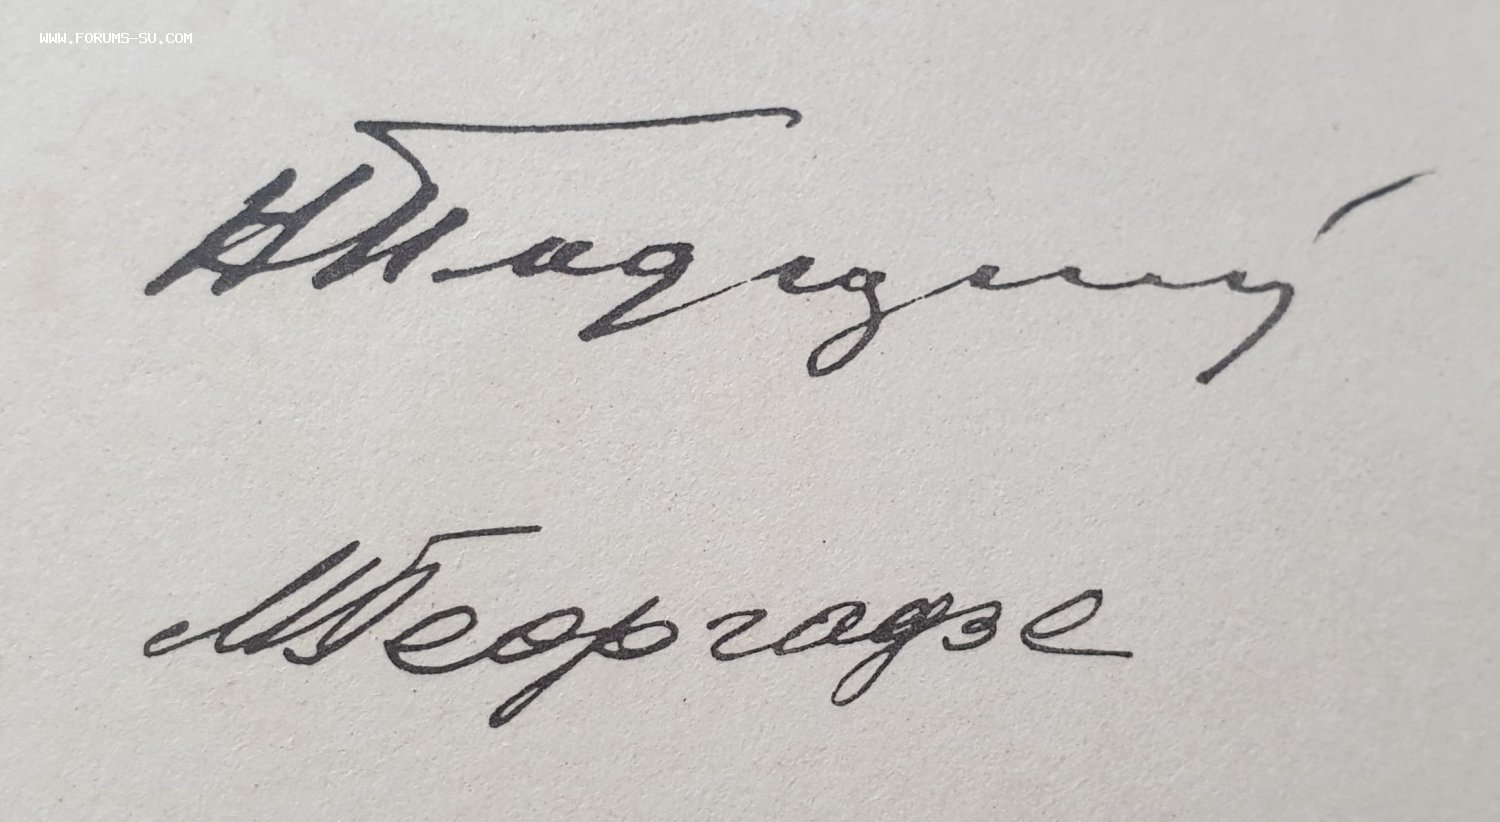 WWW.FORUMS-SU.COM
Н Подгорный
М Георгадзе